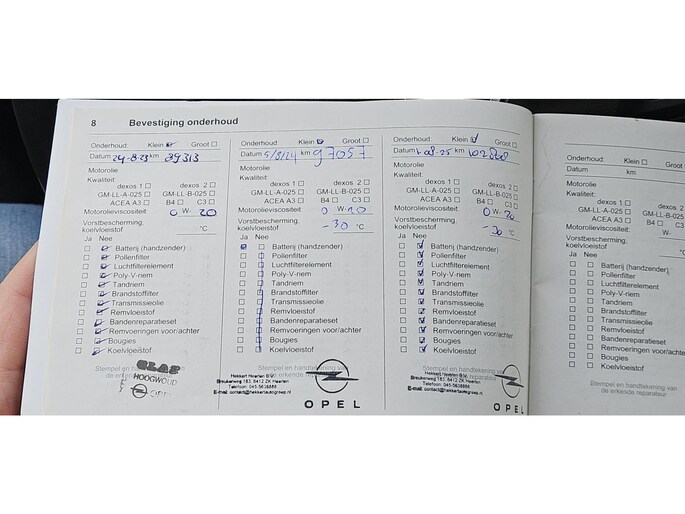 8 Bevestiging onderhoud
Onderhoud: Klein Groot
Datum 24-8-23 km 89313
Motorolie
Kwaliteit:
dexos 1 dexos 2
GM-LL-A-025 GM-LL-B-025
ACEA A3 B4 C3
Motorolieviscositeit 0 W- 20
Vorstbescherming,
koelvloeistof °C
Ja Nee
Batterij (handzender)
Pollenfilter
Luchtfilterelement
Poly-V-riem
Tandriem
Brandstoffilter
Transmissieolie
Remvloeistof
Bandenreparatieset
Remvoeringen voor/achter
Bougies
Koelvloeistof
Stempel en handtekening van
de erkende
HOOGWOUD
OPEL
Onderhoud: Klein Groot
Datum 5/8/24 km 97057
Motorolie
Kwaliteit:
dexos 1 dexos 2
GM-LL-A-025 GM-LL-B-025
ACEA A3 B4 C3
Motorolieviscositeit: 0 W-
Vorstbescherming,
koelvloeistof -30 °C
Ja Nee
Batterij (handzender)
Pollenfilter
Luchtfilterelement
Poly-V-riem
Tandriem
Brandstoffilter
Transmissieolie
Remvloeistof
Bandenreparatieset
Remvoeringen voor/achter
Bougies
Koelvloeistof
Hekkert Heerlen B.V.
Breukerweg 183, 6412 ZK Heerlen
Telefoon: 045-5638888
E-mail: contact@hekkertautogroep.nl
OPEL
Onderhoud: Klein Groot
Datum 08-25 km 102868
Motorolie
Kwaliteit:
dexos 1 dexos 2
GM-LL-A-025 GM-LL-B-025
ACEA A3 B4 C3
Motorolieviscositeit: 0 W-
Vorstbescherming,
koelvloeistof -30 °C
Ja Nee
Batterij (handzender)
Pollenfilter
Luchtfilterelement
Poly-V-riem
Tandriem
Brandstoffilter
Transmissieolie
Remvloeistof
Bandenreparatieset
Remvoeringen voor/achter
Bougies
Koelvloeistof
Hekkert Heerlen B.V.
Breukerweg 183, 6412 ZK Heerlen
Telefoon: 045-5638888
E-mail: contact@hekkertautogroep.nl
OPEL
Onderhoud: Klein Groot
Datum km
Motorolie
Kwaliteit:
dexos 1 dexos 2
GM-LL-A-025 GM-LL-B-025
ACEA A3 B4 C3
Motorolieviscositeit: W-
Vorstbescherming,
koelvloeistof °C
Ja Nee
Batterij (handzender)
Pollenfilter
Luchtfilterelement
Poly-V-riem
Tandriem
Brandstoffilter
Transmissieolie
Remvloeistof
Bandenreparatieset
Remvoeringen voor/achter
Bougies
Koelvloeistof
Stempel en handtekening van
de erkende reparateur